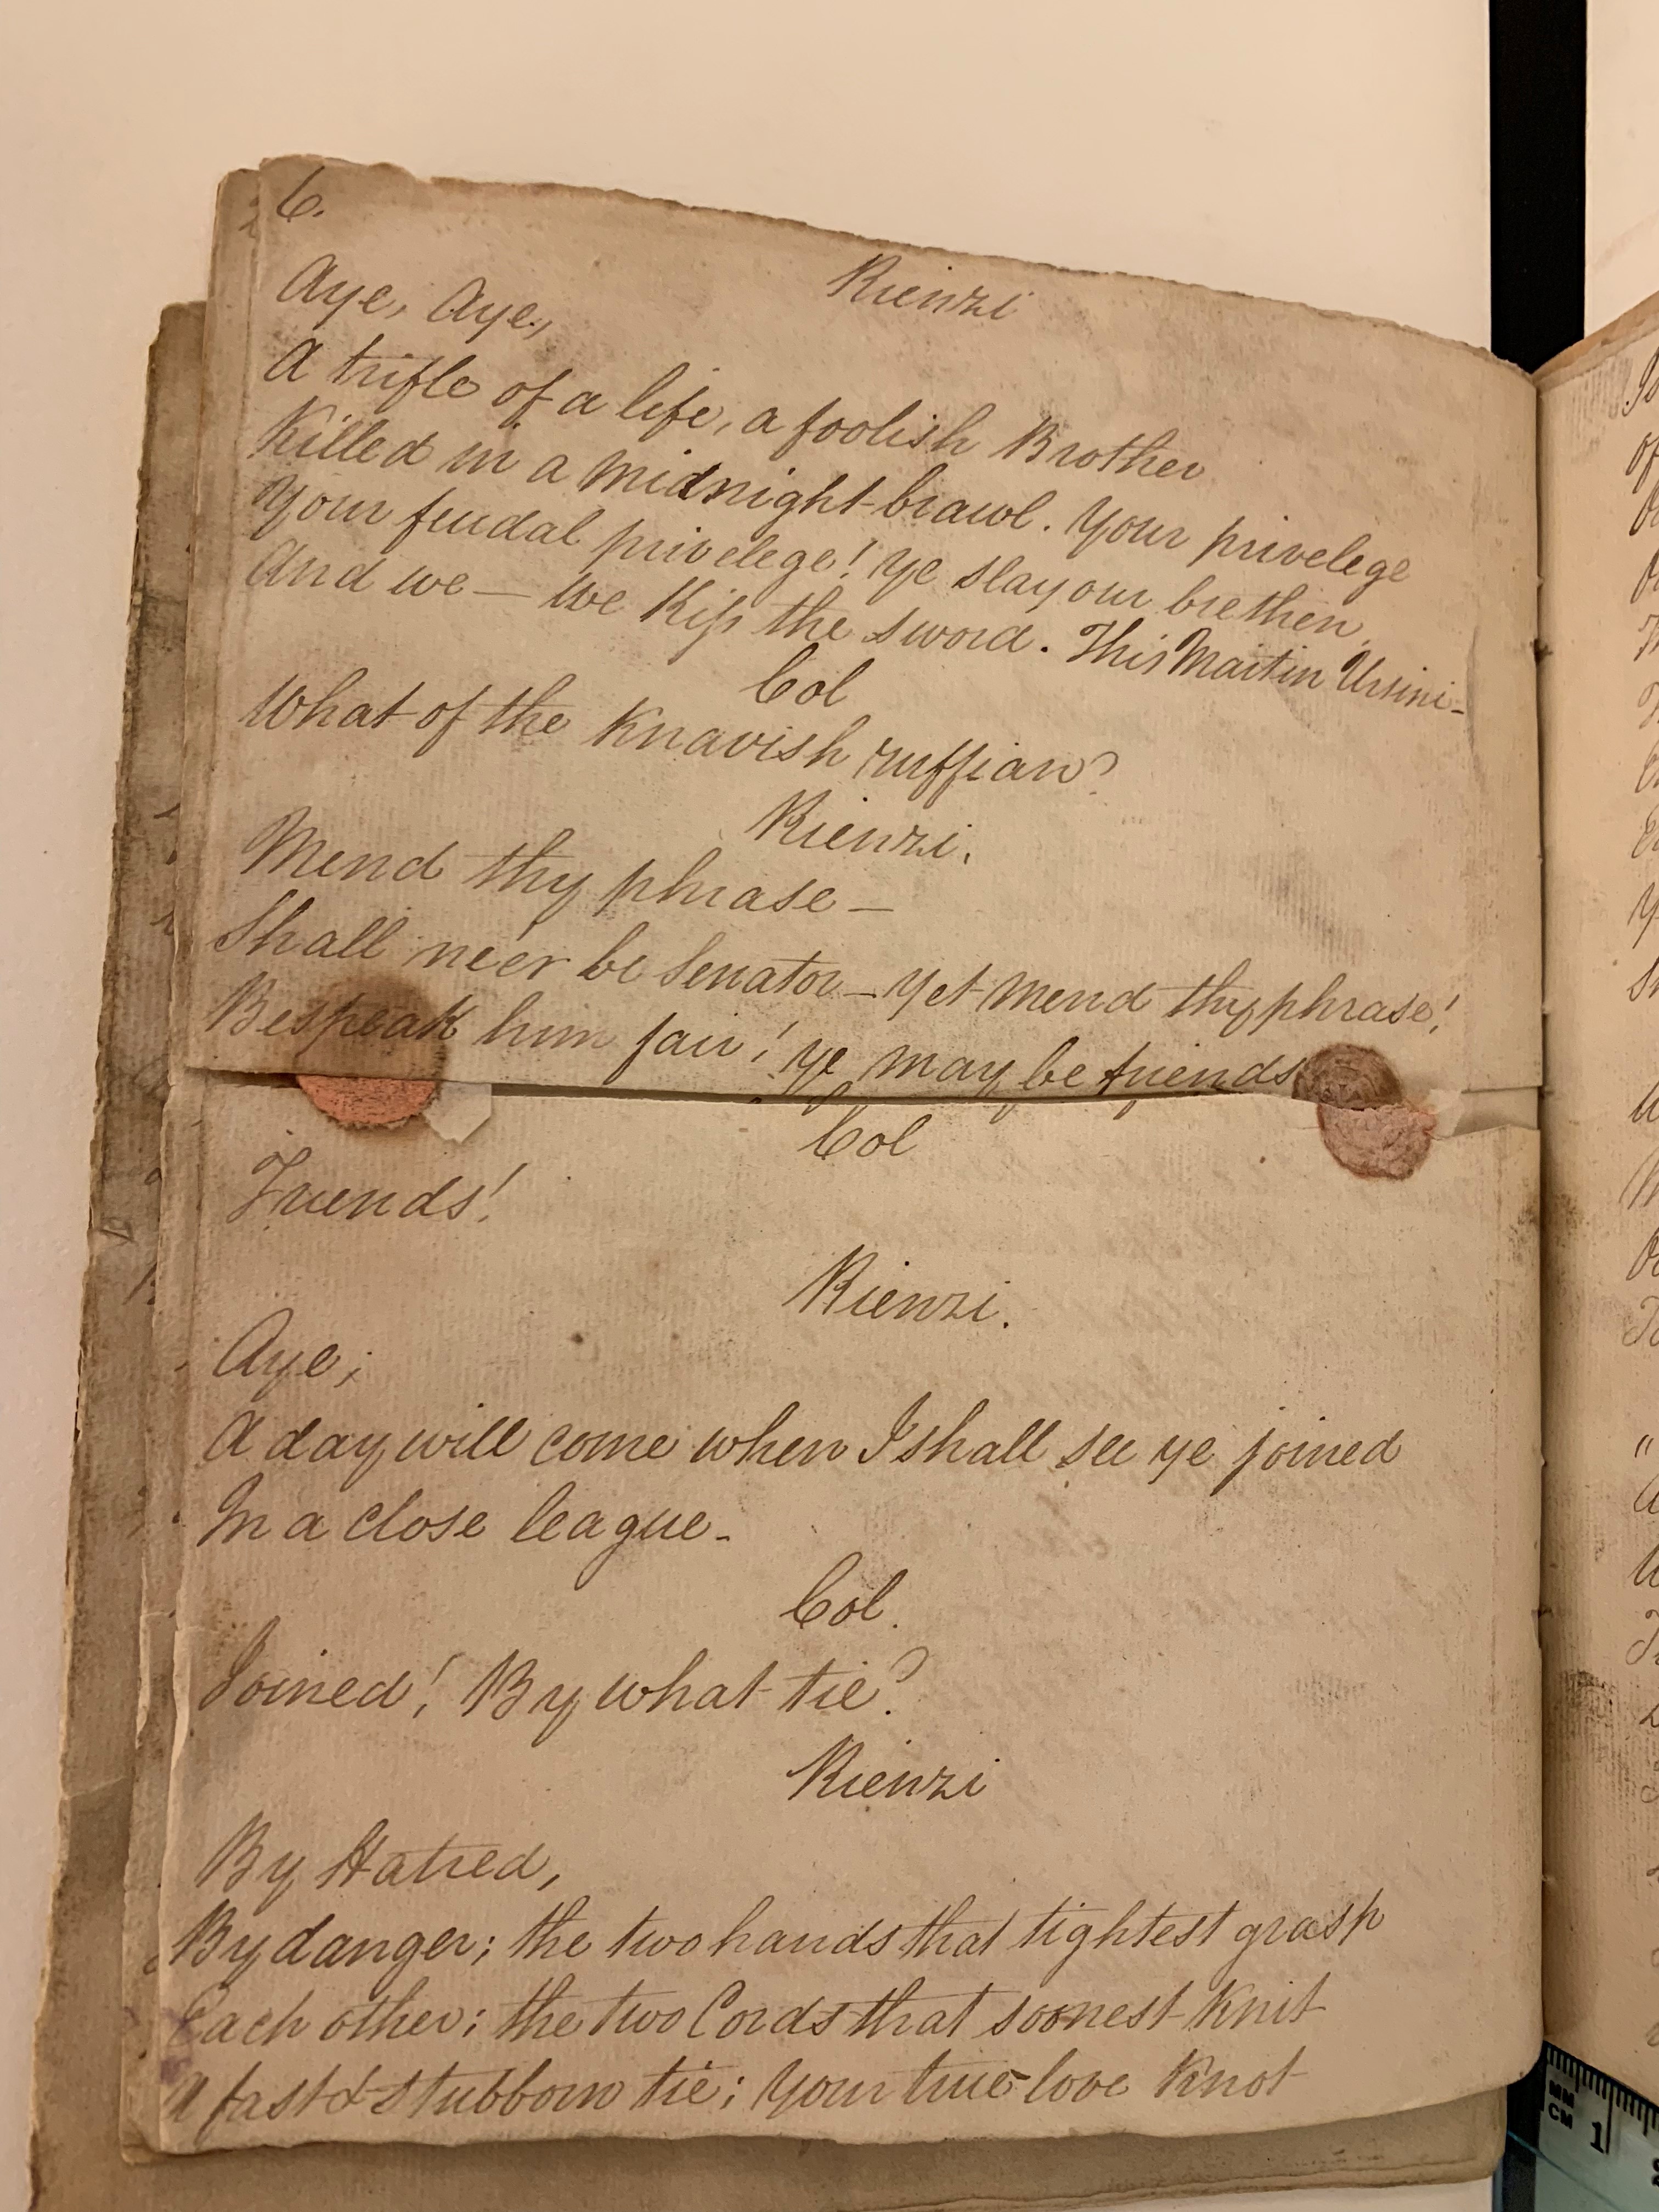 6.
Rienzi
Aye, Aye,
A trifle of a life, a foolish Brother
Killed in a midnight brawl. Your privelege
Your feudal privelege! Ye slay our brethen
And we — we Kiss the sword. This Martin Ursini-
Col
What of the Knavish ruffian?
Rienzi.
Mend thy phrase —
Shall ne'er be Senator — yet mend thy phrase!
Bespeak him fair! ye may be friends
Col
Friends!
Rienzi.
Aye;
A day will come when I shall see ye joined
In a close league -
Col.
Joined! By what tie?
Rienzi
By Hatred,
By danger; the two hands that tightest grasp
Each other; the two Cords that soonest Knit
A fast & stubborn tie; Your true love Knot
MM
CM 1